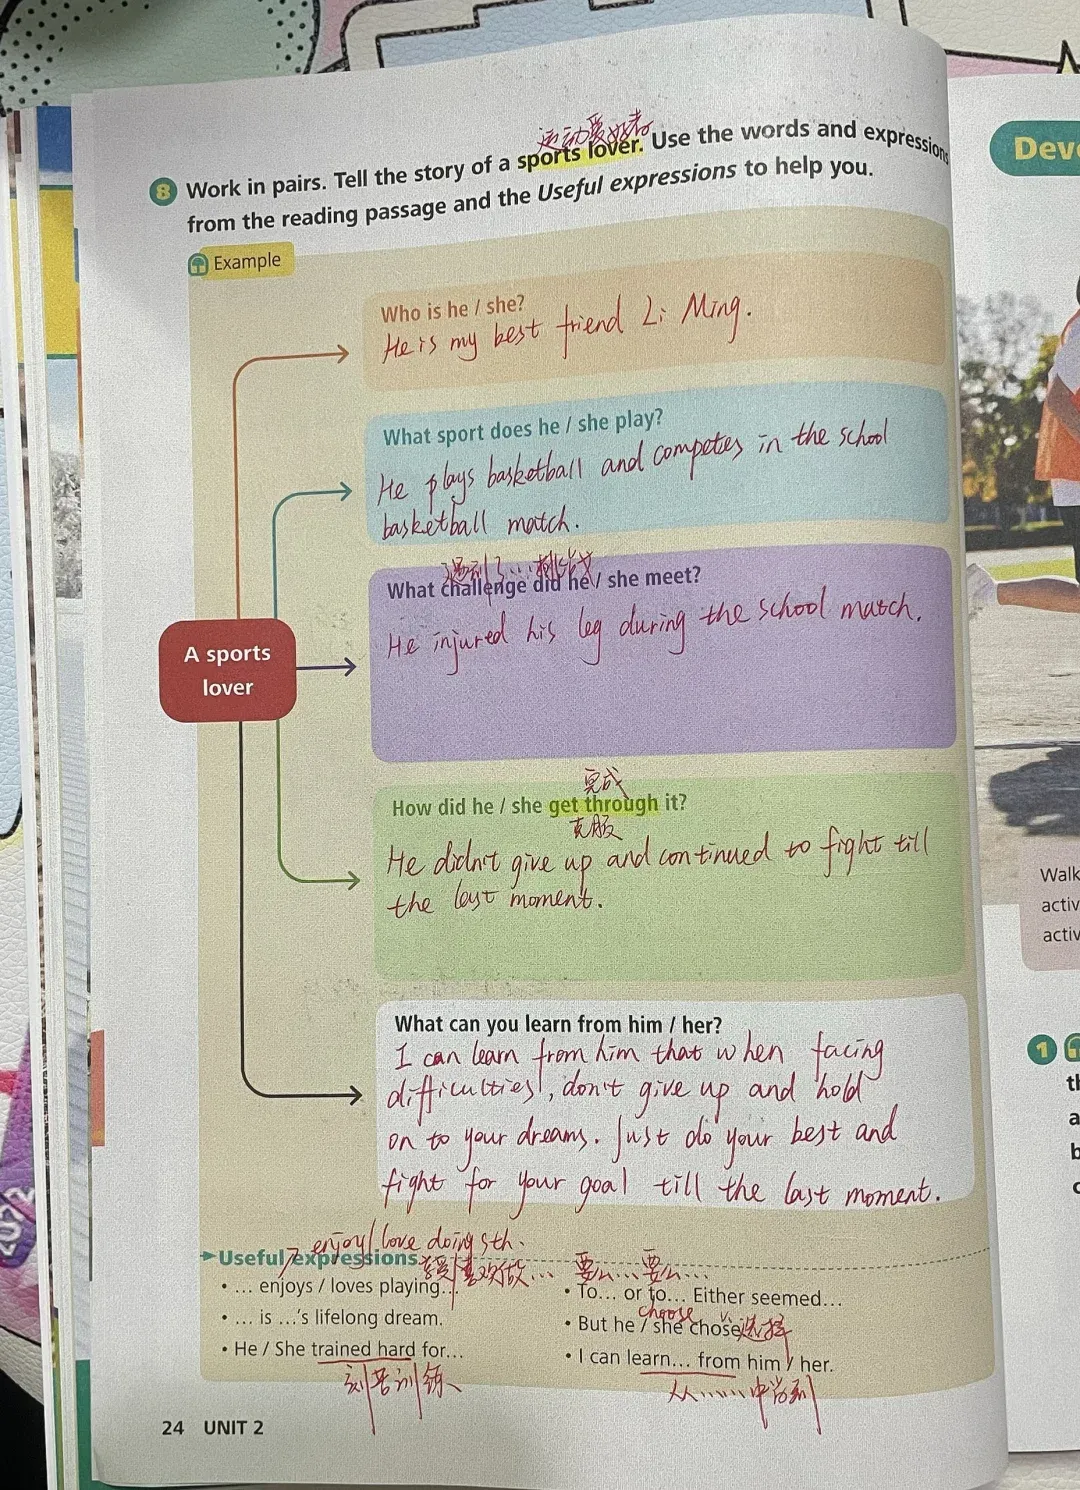 运动爱好者
8 Work in pairs. Tell the story of a sports lover. Use the words and expressions
from the reading passage and the Useful expressions to help you.
Example
Who is he / she?
He is my best friend Li Ming.
What sport does he / she play?
He plays basketball and competes in the school
basketball match.
遇到了…挑战
What challenge did he / she meet?
He injured his leg during the school match.
A sports
lover
完成
How did he / she get through it?
克服
He didn't give up and continued to fight till
the last moment.
What can you learn from him / her?
I can learn from him that when facing
difficulties, don't give up and hold
on to your dreams. Just do your best and
fight for your goal till the last moment.
enjoy/love doing sth.
Useful expressions
要么…要么…
• … enjoys / loves playing…
• … is …'s lifelong dream.
• He / She trained hard for…
刻苦训练
• To… or to… Either seemed…
choose v.
• But he / she chose 选择
• I can learn… from him / her.
从……中学到
24 UNIT 2
Walk
activ
activ
1